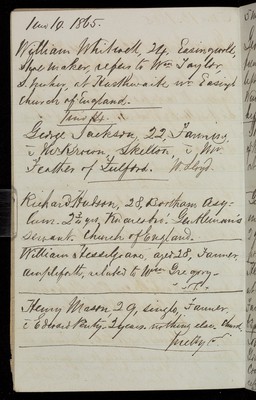 Novr 10. 1865.
William Whitwell, 24, Easingwold,
Shoe maker, refers to Wm Taylor,
at Husthwaite nr Easingd
Church of England.
George Jackson, 22, Farmer,
Brown, Skelton, & Mr
Feather of Fulford. W. Lloyd.
Richard Hudson, 28, Bootham Asy-
lum. 2½ yrs, Gentleman's
Servant. Church of England.
William Hesselgrave, aged 28, Farmer
Ampleforth, related to Wm Gregory.
Henry Mason 29, single, Farmer,
Edward 2 years. nothing else. Church